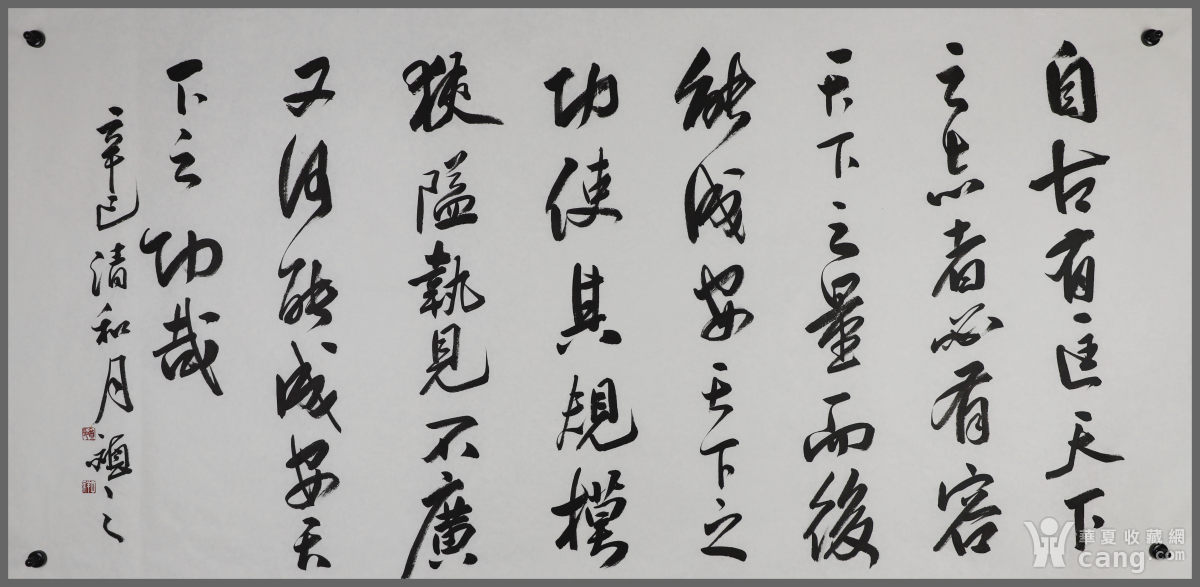 自古有匡天下
之志者必有容
天下之量而後
能成安天下之
功使其規模
狹隘執見不廣
又何能成安天
下之功哉
辛巳清和月
華夏收藏網
cang.com